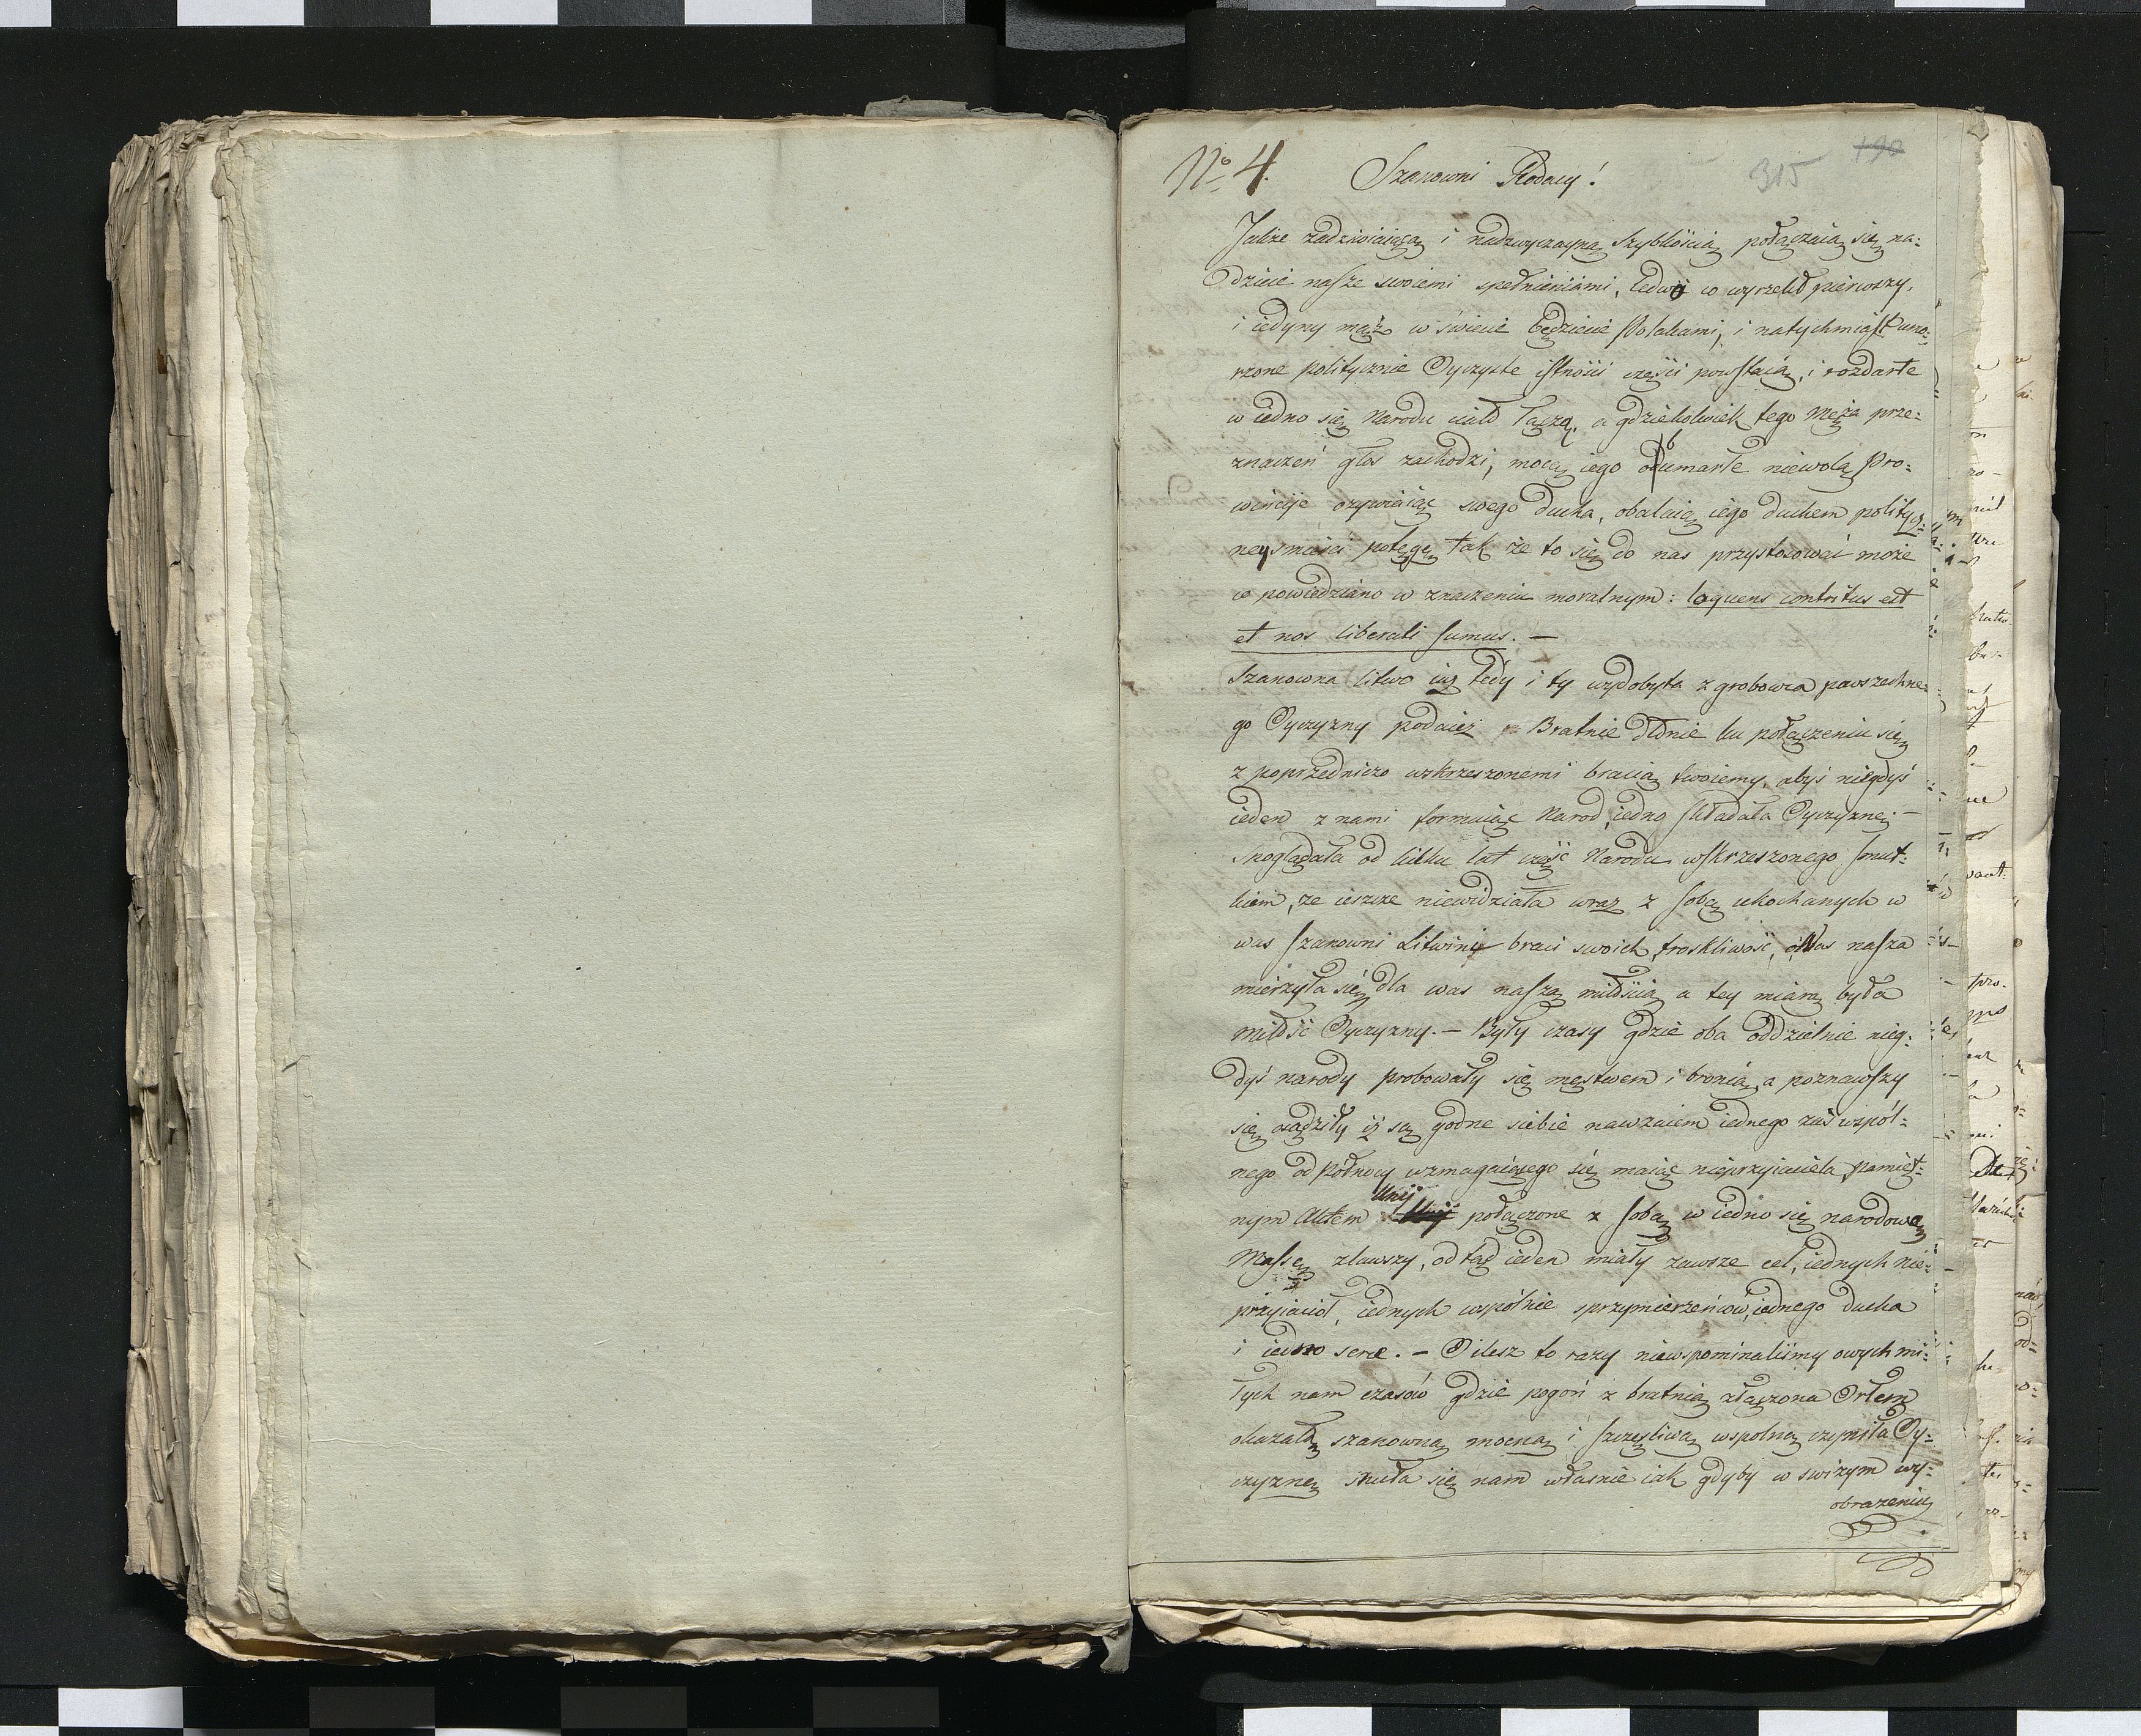 190
315
No 4. Szanowni Rodacy!
Jakże zadziwiaiącą i nadzwyczayną szybkością połączaią się na=
dzieie nasze swoiemi spełnieniami, ledwo co wyrzekł pierwszy,
i iedyny mąż w świecie będziecie Polakami, i natychmiast umo=
rzone politycznie Oyczyste istności części powstaią, i rozdarte
w iedno się Narodu ciało łączą, a gdziekolwiek tego Męża prze=
znaczeń głos zachodzi, mocą iego obumarłe niewolą Pro=
wincije ożywiaiąc swego ducha, obalaią iego duchem politycz=
ney śmierci potęgę tak że to się do nas przystosować może
co powiedziano w znaczeniu moralnym: laqueus contritus est
et nos liberati sumus. —
Szanowna Litwo iuż tedy i ty wydobyta z grobowca powszechne=
go Oyczyzny podaiesz Bratnie dłonie ku połączeniu się
z poprzedniczo wzkrzeszonemi bracią twoiemy, abyś niegdyś
ieden z nami formuiąc Narod, iedno składała Oyczyznę; —
Spoglądała od kilku lat część Narodu wskrzeszonego smut=
kiem, że ieszcze niewidziała wraz z sobą ukochanych w
was szanowni Litwini braci swoich, troskliwość, o Was nasza
mierzyła się dla was naszą miłością a tey miarą była
miłość Oyczyzny. — Były czasy gdzie oba oddzielnie nieg=
dyś narody probowały się męstwem i bronią, a poznawszy
się osądziły iż są godne siebie nawzaiem iednego zaś wspól=
nego od północy wzmagaiącego się maiąc nieprzyiaciela pamięt=
nym Aktem Unij połączone z sobą w iedno się narodową
Massę zlawszy, odtąd ieden miały zawsze cel, iednych nie=
przyiaciół, iednych wspólnie sprzymierzeńców, iednego ducha
i iedno serce. — O ilesz to razy niewspominaliśmy owych mi=
łych nam czasów gdzie pogoń z bratnią złączona Orłem
okazałą szanowną mocną i szczęśliwą wspolną czyniła Oy=
czyznę, snuła się nam własnie iak gdyby w swiżym wy=
obrażeniu